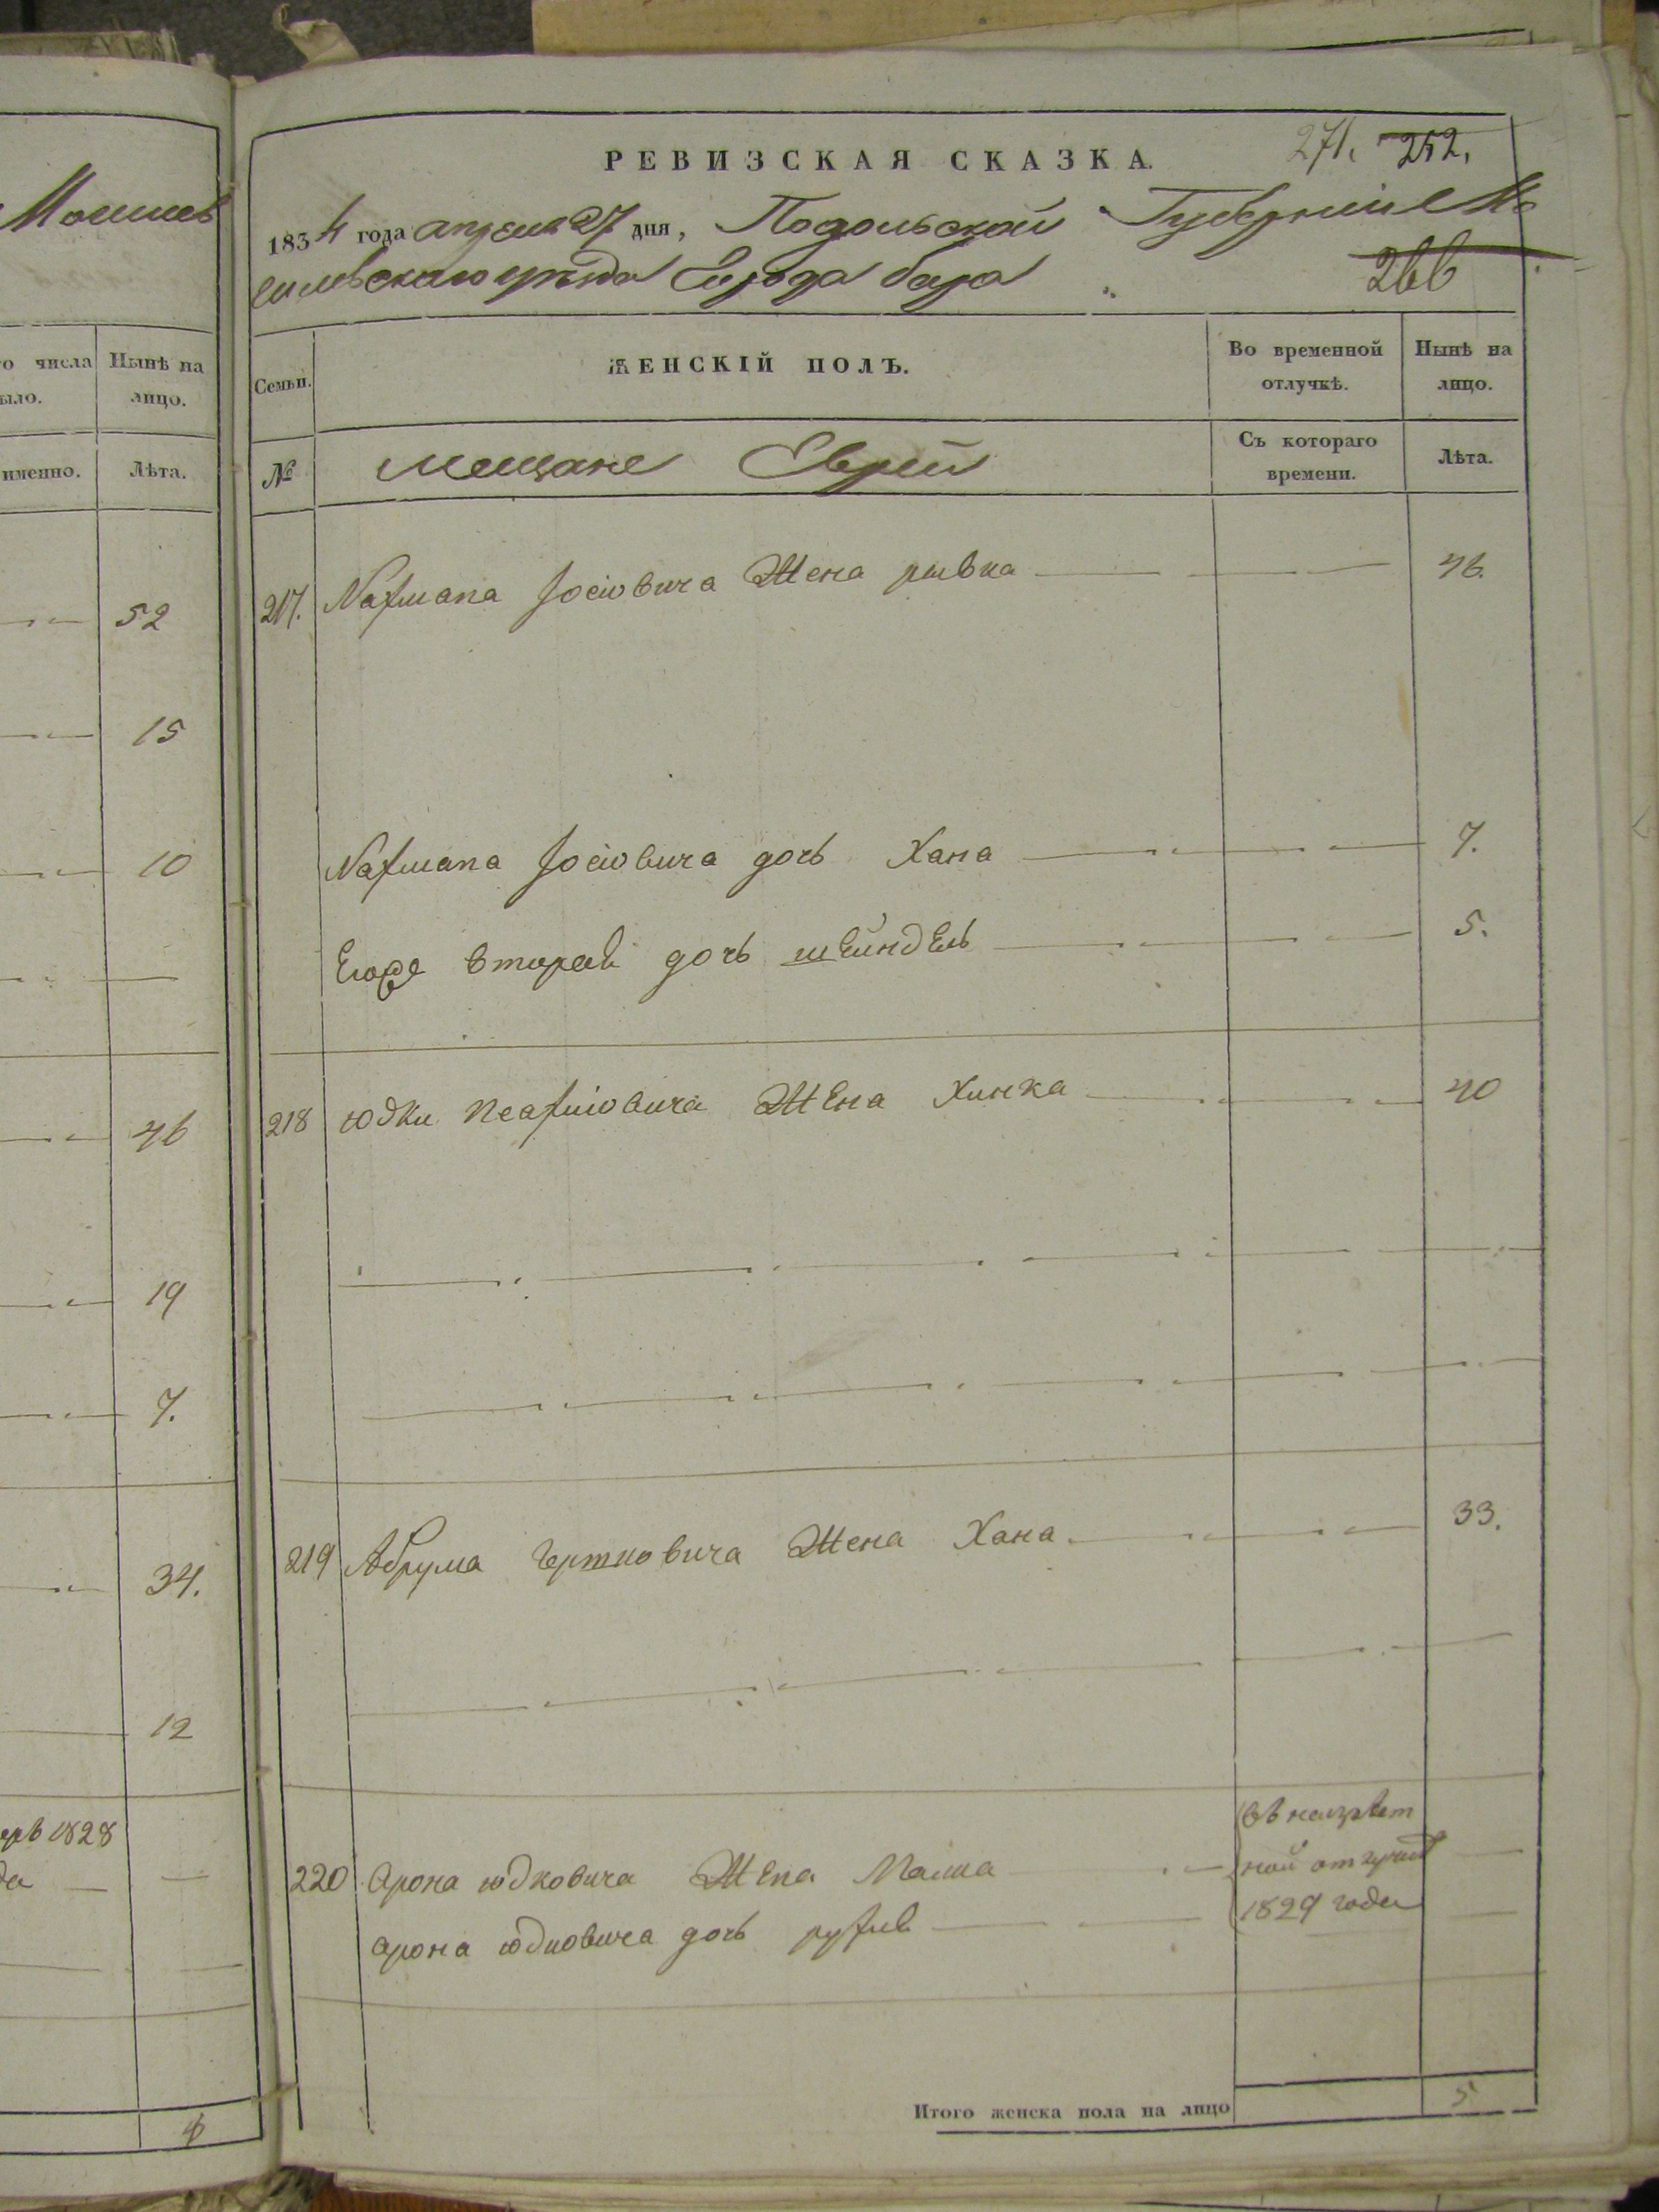 Мошилев
о числа
ыло.
Нынѣ на
лицо.
именно.
Лѣта.
52
15
10
46
19
7.
34.
12
1828
да
4
РЕВИЗСКАЯ СКАЗКА.
271. 252.
1834 года апреля 27 дня, Подольской Губернии Мо
гилевского уезда Города бара
266
Семьи.
ЖЕНСКІЙ ПОЛЪ.
Во временной
отлучкѣ.
Нынѣ на
лицо.
№
мещане Евреи
Съ котораго
времени.
Лѣта.
217. Нахмана Іосіовича Жена рывка 46.
Нахмана Іосіовича дочь Хана 7.
Его же вторая дочь шейндель 5.
218 юдки Жена Хинка 40
219 Абрума Гершковича Жена Хана 33.
220 Арона юдковича Жена Малка
въ неизвест
ной отлучке
1829 года
арона юдковича дочь рухля
Итого женска пола на лицо 5